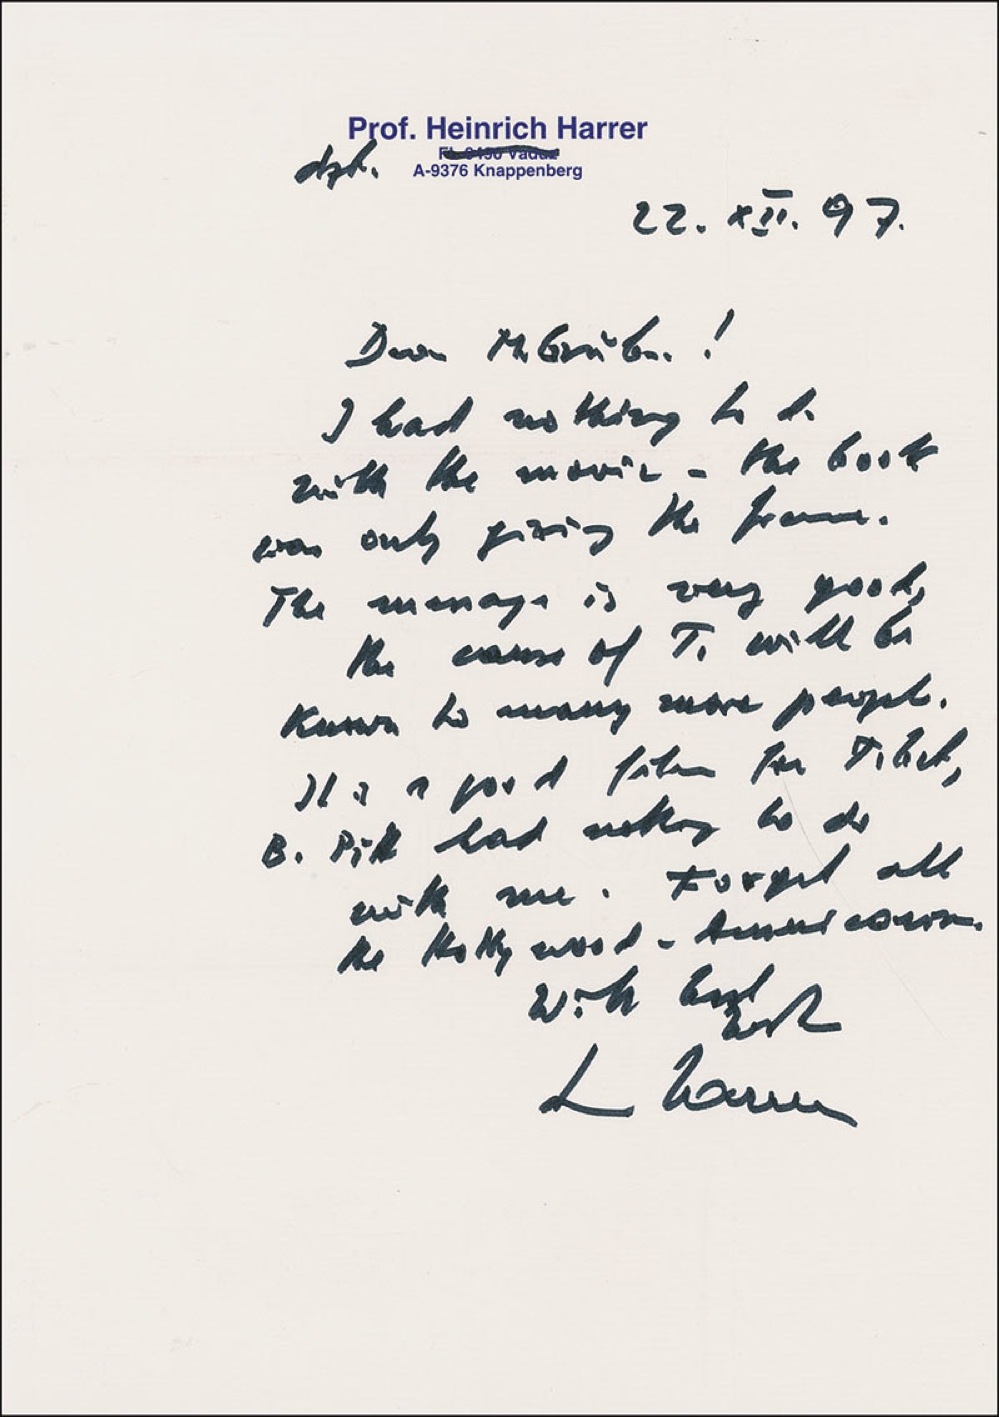 Prof. Heinrich Harrer
FL-9490 Vaduz
dzt. A-9376 Knappenberg
22. XII. 97.
Dear Mr. !
I had nothing to do
with the movie - the book
was only giving the frame.
The message is very good,
the cause of T. will be
known to many more people.
It is a good film for Tibet,
B. Pitt had nothing to do
with me. Forget all
the Hollywood -
With best
wish
H. Harrer